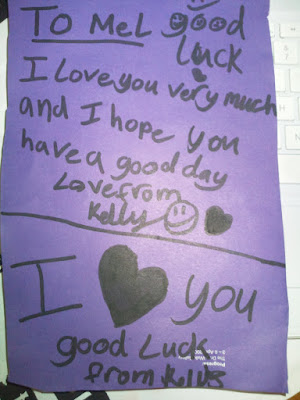 To Mel good
luck
I love you very much
and I hope you
have a good day
Love from
Kelly
I you
good Luck
from Kelly